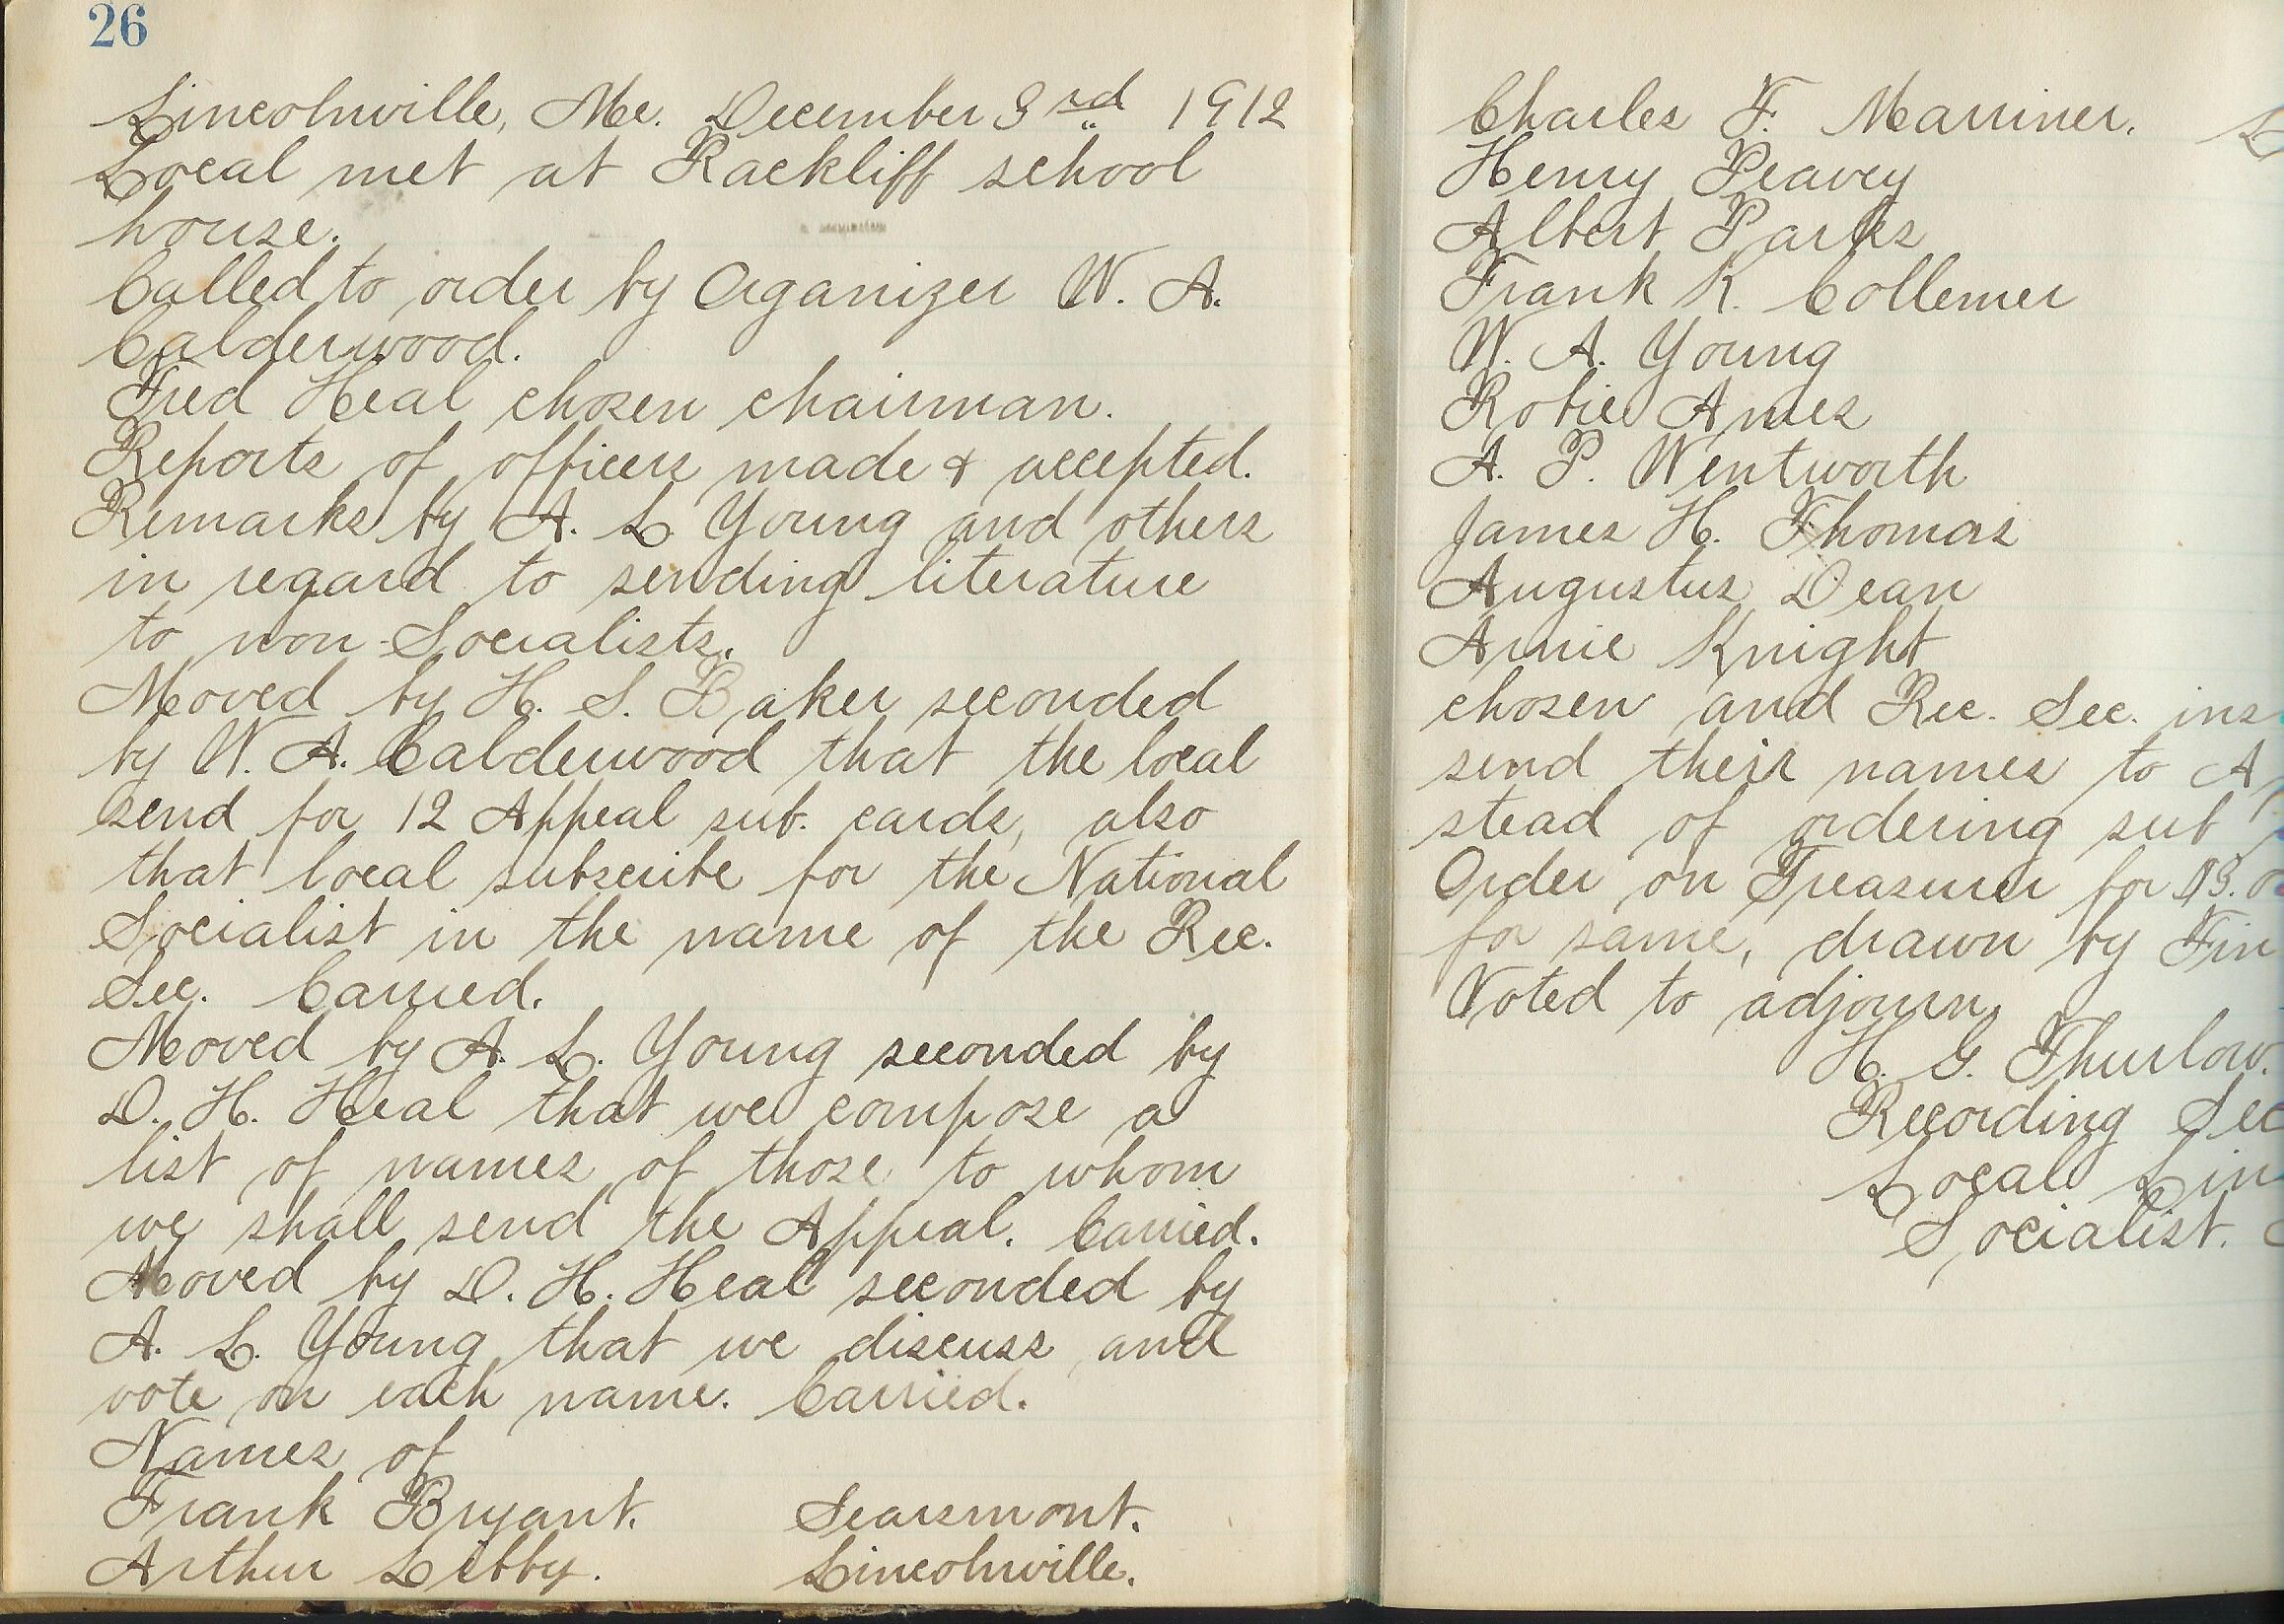 26
Lincolnville, Me. December 3rd 1912
Local met at Rackliff school
house.
Called to order by Organizer W. A.
Calderwood.
Fred Heal chosen chairman.
Reports of officers made & accepted.
Remarks by A. L. Young and others
in regard to sending literature
to non-Socialists.
Moved by H. S. Baker seconded
by W. A. Calderwood that the local
send for 12 Appeal sub. cards, also
that local subscribe for the National
Socialist in the name of the Rec.
Sec. Carried.
Moved by A. L. Young seconded by
D. H. Heal that we compose a
list of names of those to whom
we shall send the Appeal. Carried.
Moved by D. H. Heal seconded by
A. L. Young that we discuss and
vote on each name. Carried.
Names of
Frank Bryant. Searsmont.
Arthur Libby. Lincolnville.
Charles F. Marriner. L
Henry Peavey
Albert Parks
Frank R. Collemer
W. A. Young
Robie Ames
A. P. Wentworth
James H. Thomas
Augustus Dean
Annie Knight
chosen and Rec. Sec. ins
send their names to A
stead of ordering sub
Order on Treasurer for $3.
for same, drawn by Fin
Voted to adjourn.
H. G. Thurlow.
Recording Sec
Local Lin
Socialist.